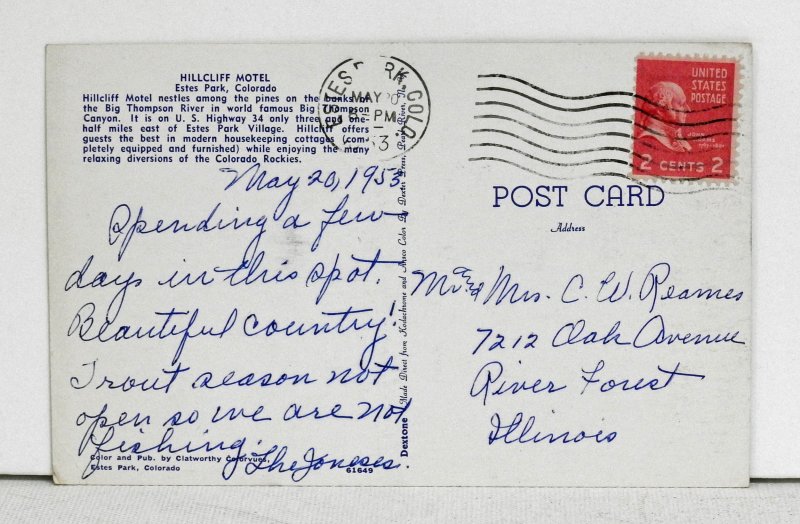 HILLCLIFF MOTEL
Estes Park, Colorado
Hillcliff Motel nestles among the pines on the banks of
the Big Thompson River in world famous Big Thompson
Canyon. It is on U. S. Highway 34 only three and one-
half miles east of Estes Park Village. Hillcliff offers
guests the best in modern housekeeping cottages (com-
pletely equipped and furnished) while enjoying the many
relaxing diversions of the Colorado Rockies.
May 20, 1953
Spending a few
days in this spot.
Beautiful country!
Trout season not
open so we are not
fishing.
The Joneses.
Color and Pub. by Clatworthy Colorvues,
Estes Park, Colorado
61649
Dextone Made Direct from Kodachrome and Ansco Color By Dexter Press, Pearl River, N.Y.
ESTES PARK COLO.
MAY 20
PM
53
UNITED
STATES
POSTAGE
JOHN
ADAMS
1797-1801
2 CENTS 2
POST CARD
Address
Mr. & Mrs. C. W. Reames
7212 Oak Avenue
River Forest
Illinois